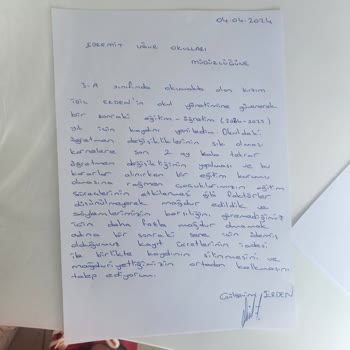 04.04.2024
EDREMİT UĞUR OKULLARI
MÜDÜRLÜĞÜNE
3-A sınıfında okumakta olan kızım
ERDEN'in okul yönetimine güvenerek
bir sonraki eğitim-öğretim (2024-2025)
yılı için kaydını yeniledim. Okuldaki
öğretmen değişikliklerinin sık olması
karnelere son 2 ay kala tekrar
öğretmen değişikliğinin yapılması ve bu
kararlar alınırken bir eğitim kurumu
olmasına rağmen çocuklarımızın eğitim
süreçlerinin etkilemesi gibi faktörler
düşünülmeyerek mağdur edildik ve
söylemlerimizin karşılığını göremediğimiz
için daha fazla mağdur olmamak
adına bir sonraki sene için ödemiş
olduğumuz kayıt ücretlerinin iadesi
ile birlikte kaydının silinmesini ve
mağduriyetliğimizin ortadan kalkmasını
talep ediyorum.
ERDEN